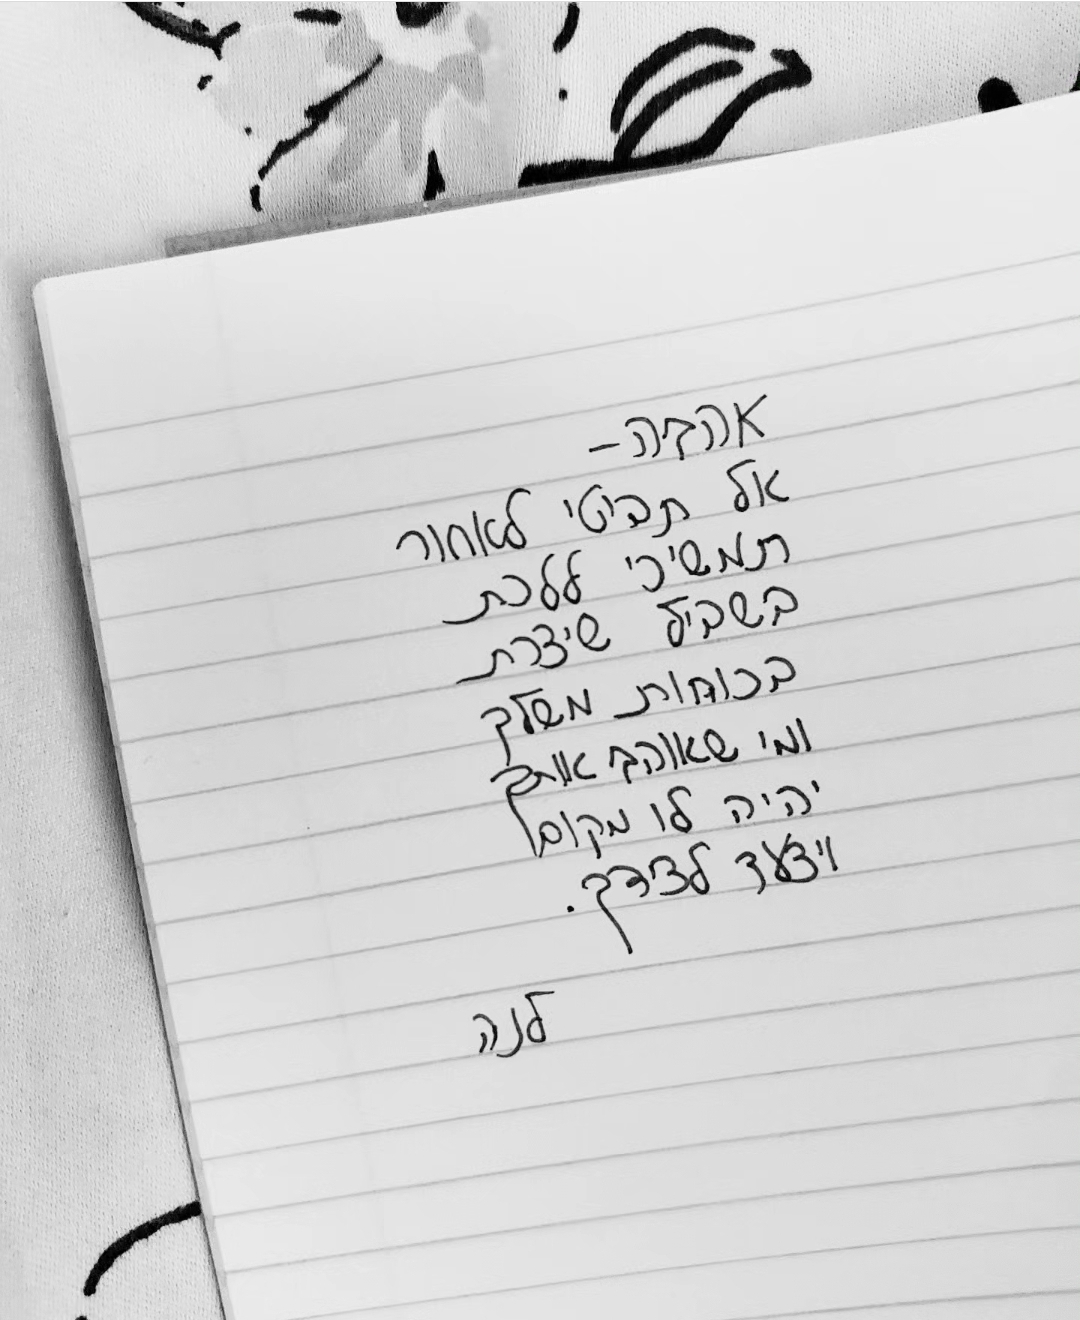 אהבה–
אל תביטי לאחור
תמשיכי ללכת
בשביל שיצרת
בכוחות משלך
ומי שאוהב אותך
יהיה לו מקום
ויצעד לצידך.
לנה